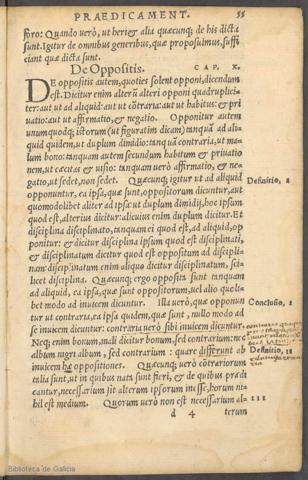 PRAEDICAMENT. 55
foro: Quando uerò, ut heri: & alia quæcunq; de his dicta
sunt. Igitur de omnibus generibus, quæ proposuimus, suffi
ciant quæ dicta sunt.
De Oppositis. CAP. X.
DE oppositis autem, quoties solent opponi, dicendum
est. Dicitur enim alterũ alteri opponi quadruplici-
ter: aut ut ad aliquid: aut ut cõtraria: aut ut habitus: & pri
uatio: aut ut affirmatio, & negatio. Opponitur autem
unumquodq; istorum (ut figuratim dicam) tanquã ad ali-
quid quidem, ut duplum dimidio: tanquã contraria, ut ma
lum bono: tanquam autem secundum habitum & priuatio
nem, ut cæcitas & uisio: tanquam uerò affirmatio, & ne-
gatio, ut sedet, non sedet. Quæcunq; igitur ut ad aliquid
Definitio, 1
opponuntur, ea ipsa, quæ sunt, oppositorum dicuntur, aut
quomodolibet aliter ad ipsa: ut duplum dimidij, hoc ipsum
quod est, alterius dicitur: alicuius enim duplum dicitur. Et
disciplina disciplinato, tanquam ei quod est, ad aliquid, op
ponitur: & dicitur disciplina ipsum quod est disciplinati,
& disciplinatum dicitur quod est oppositum ad discipli-
nam: disciplinatum enim aliquo dicitur disciplinatum, sci-
licet disciplina. Quæcunq; ergo opposita sunt tanquam
ad aliquid, ea ipsa, quæ sunt oppositorum, uel alio quoli-
bet modo ad inuicem dicuntur. Illa uerò, quæ opponun
Conclusio, 1
tur ut contraria, ea ipsa quidem, quæ sunt, nullo modo ad
se inuicem dicuntur: contraria uerò sibi inuicem dicuntur.
Neq; enim bonum, mali dicitur bonum, sed contrarium: nec
album nigri album, sed contrarium: quare differunt ab
Definitio, 11
inuicem hæ oppositiones. Quæcunq; uerò cõtrariorum
talia sunt, ut in quibus nata sunt fieri, & de quibus prædi
cantur, necessarium sit alterum ipsorum inesse, horum ni-
hil est medium. Quorum uerò non est necessarium al-
111
d 4 terum
Biblioteca de Galicia